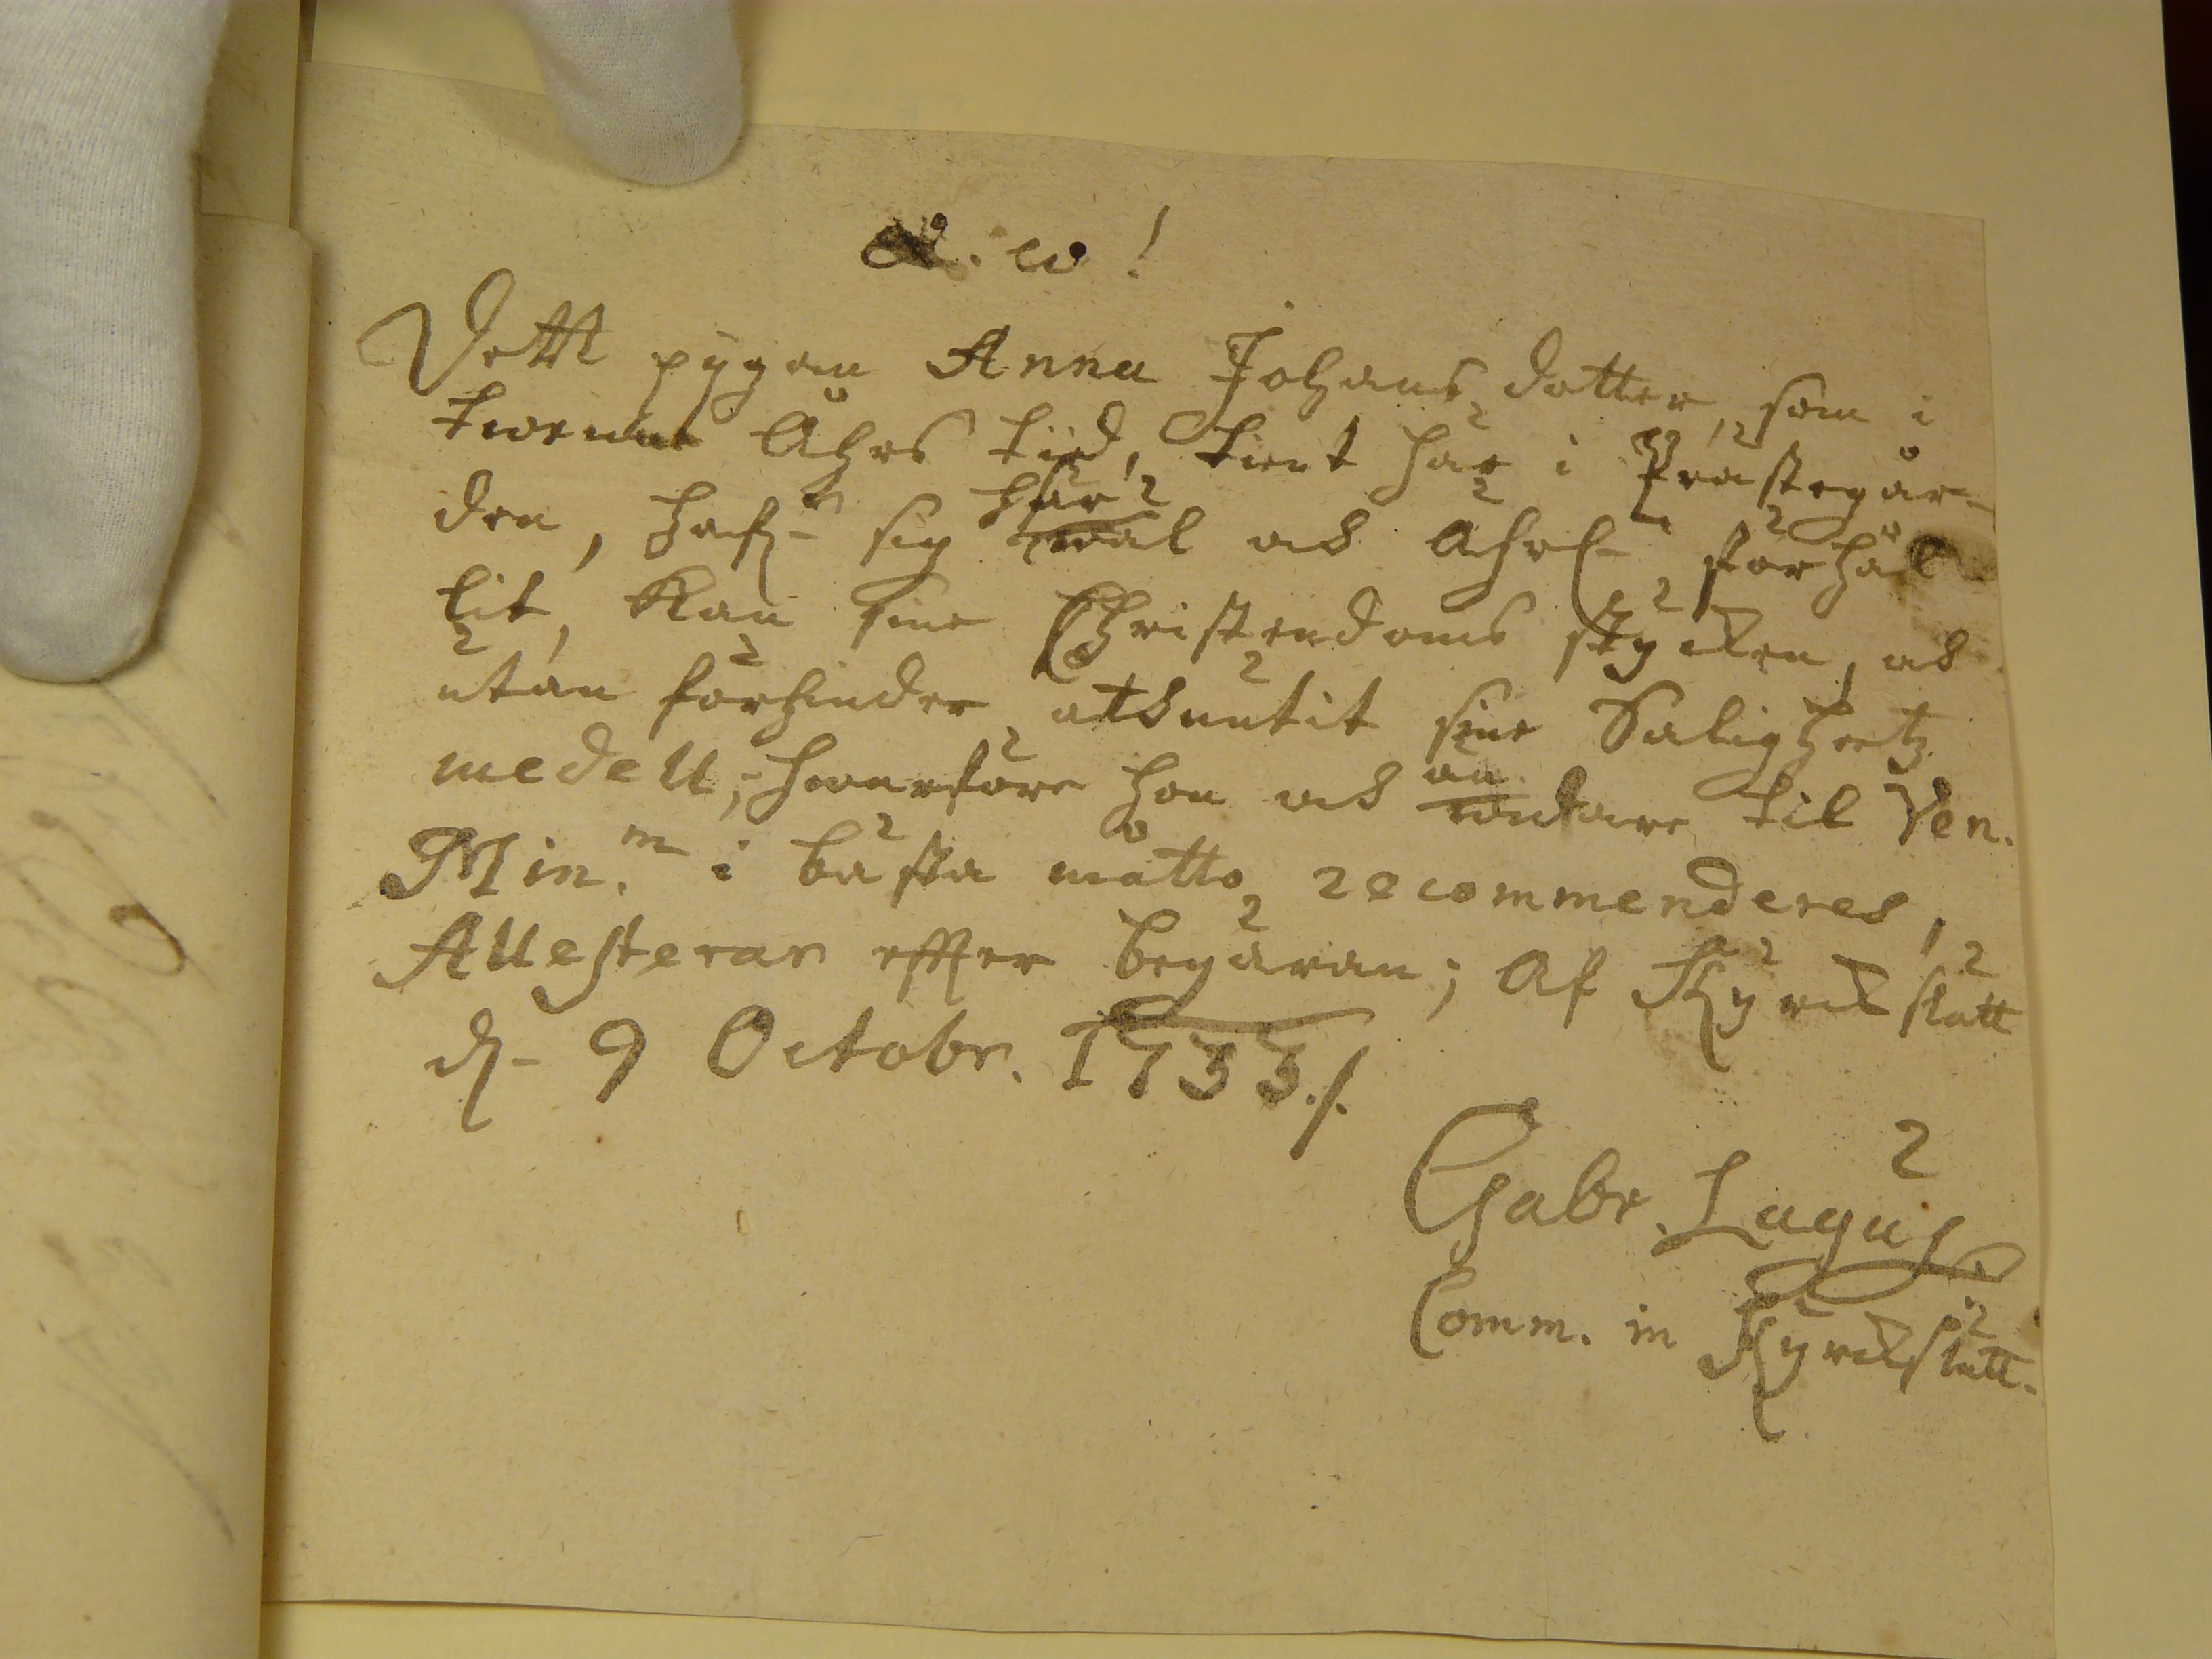 α. ω!
Dett pÿgan Anna Johans dotter, som i
twenne Åhrs tiid, tient här i Prästegår-
den, haf:r sig här wäl och ährl: förhål
lit, kan sine Christendoms stycken, och
utan förhinder åthnutit sine Salighetz
medell; hwarföre hon och an til Ven.
Min.m i bästa måtto recommenderes,
Attesterar effter begäran; Af Kyrckslätt
d: 9 Octobr. 1733./.
Gabr. Lagus
Comm. in Kyrckslätt.